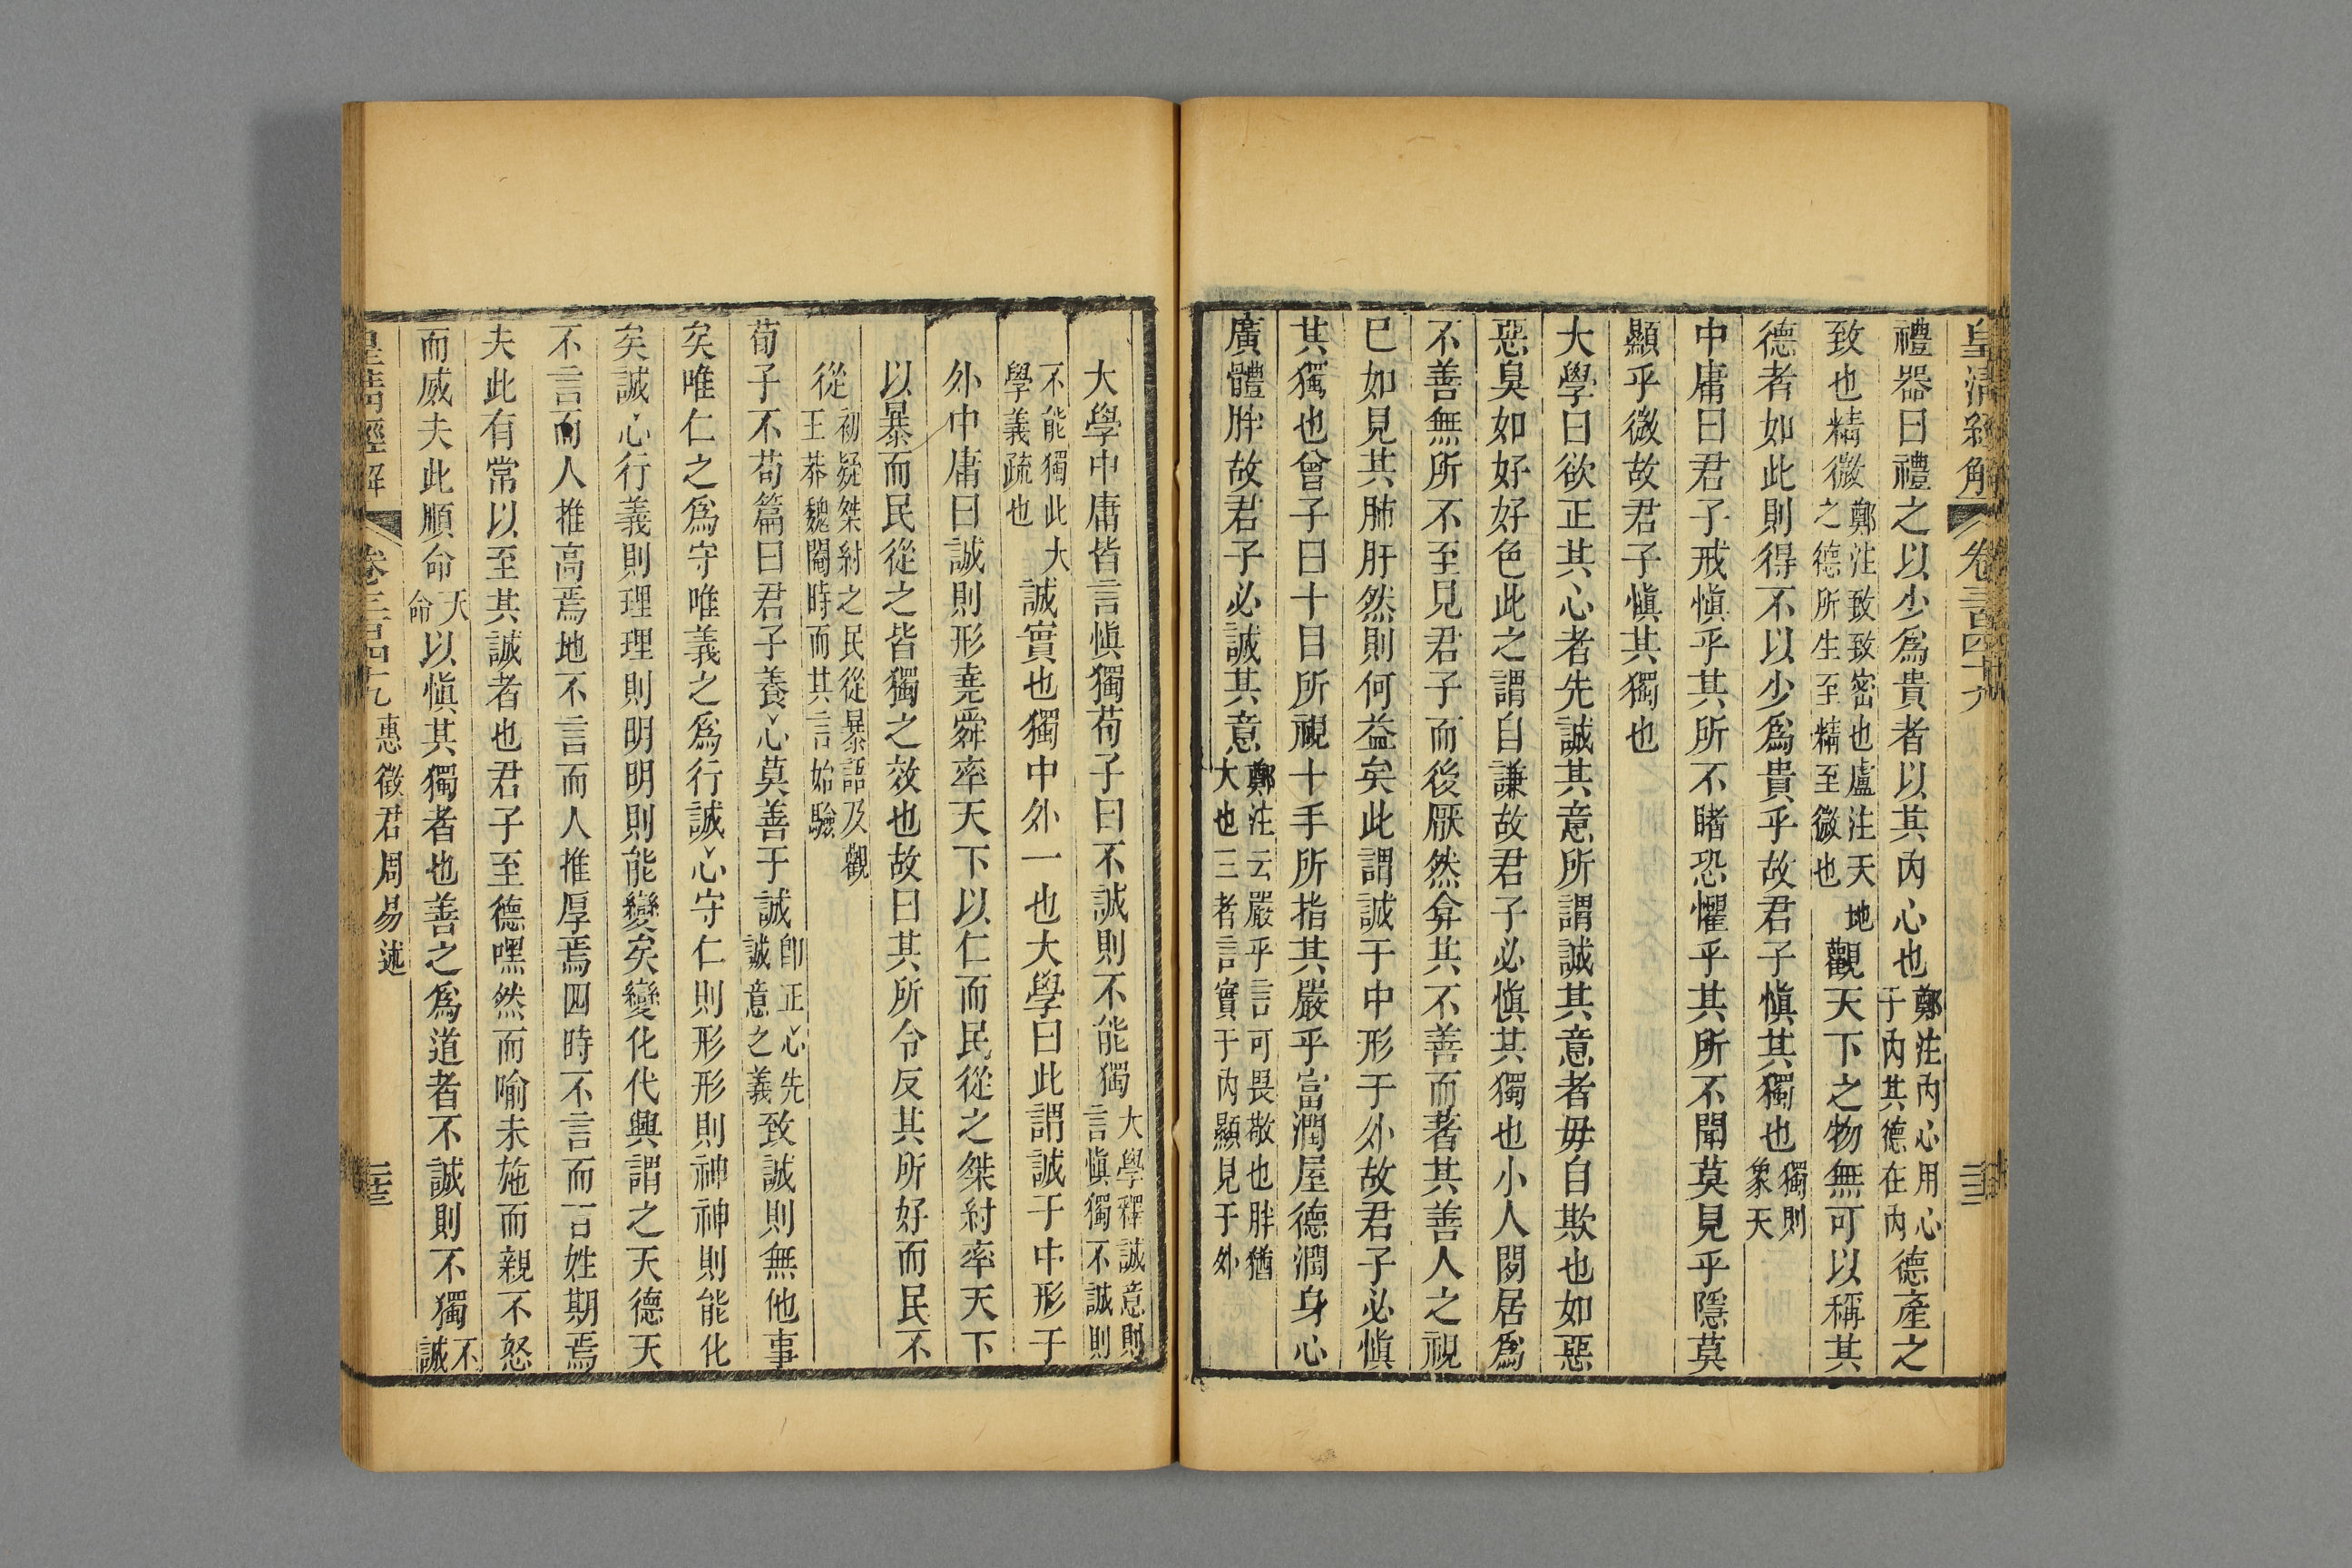 皇清經解 卷三百四十九
禮器曰禮之以少爲貴者以其內心也鄭注內心用心于內其德在內德產之
致也精微鄭注致致密也盧注天地之德所生至精至微也觀天下之物無可以稱其
德者如此則得不以少爲貴乎故君子愼其獨也獨則象天
中庸曰君子戒愼乎其所不睹恐懼乎其所不聞莫見乎隱莫
顯乎微故君子愼其獨也
大學曰欲正其心者先誠其意所謂誠其意者毋自欺也如惡
惡臭如好好色此之謂自謙故君子必愼其獨也小人閒居爲
不善無所不至見君子而後厭然弇其不善而著其善人之視
已如見其肺肝然則何益矣此謂誠于中形于外故君子必愼
其獨也曾子曰十目所視十手所指其嚴乎富潤屋德潤身心
廣體胖故君子必誠其意鄭注云嚴乎言可畏敬也胖猶大也三者言實于內顯見于外
大學中庸皆言愼獨荀子曰不誠則不能獨大學釋誠意則言愼獨不誠則
不能獨此大學義疏也誠實也獨中外一也大學曰此謂誠于中形于
外中庸曰誠則形堯舜率天下以仁而民從之桀紂率天下
以暴而民從之皆獨之效也故曰其所令反其所好而民不
從初疑桀紂之民從暴語及觀王莽魏閹時而其言始驗
荀子不苟篇曰君子養心莫善于誠卽正心先誠意之義致誠則無他事
矣唯仁之爲守唯義之爲行誠心守仁則形形則神神則能化
矣誠心行義則理理則明明則能變矣變化代興謂之天德天
不言而人推高焉地不言而人推厚焉四時不言而百姓期焉
夫此有常以至其誠者也君子至德嘿然而喻未施而親不怒
而威夫此順命天命以愼其獨者也善之爲道者不誠則不獨不誠
皇清經解 卷三百四十九 惠徵君周易述